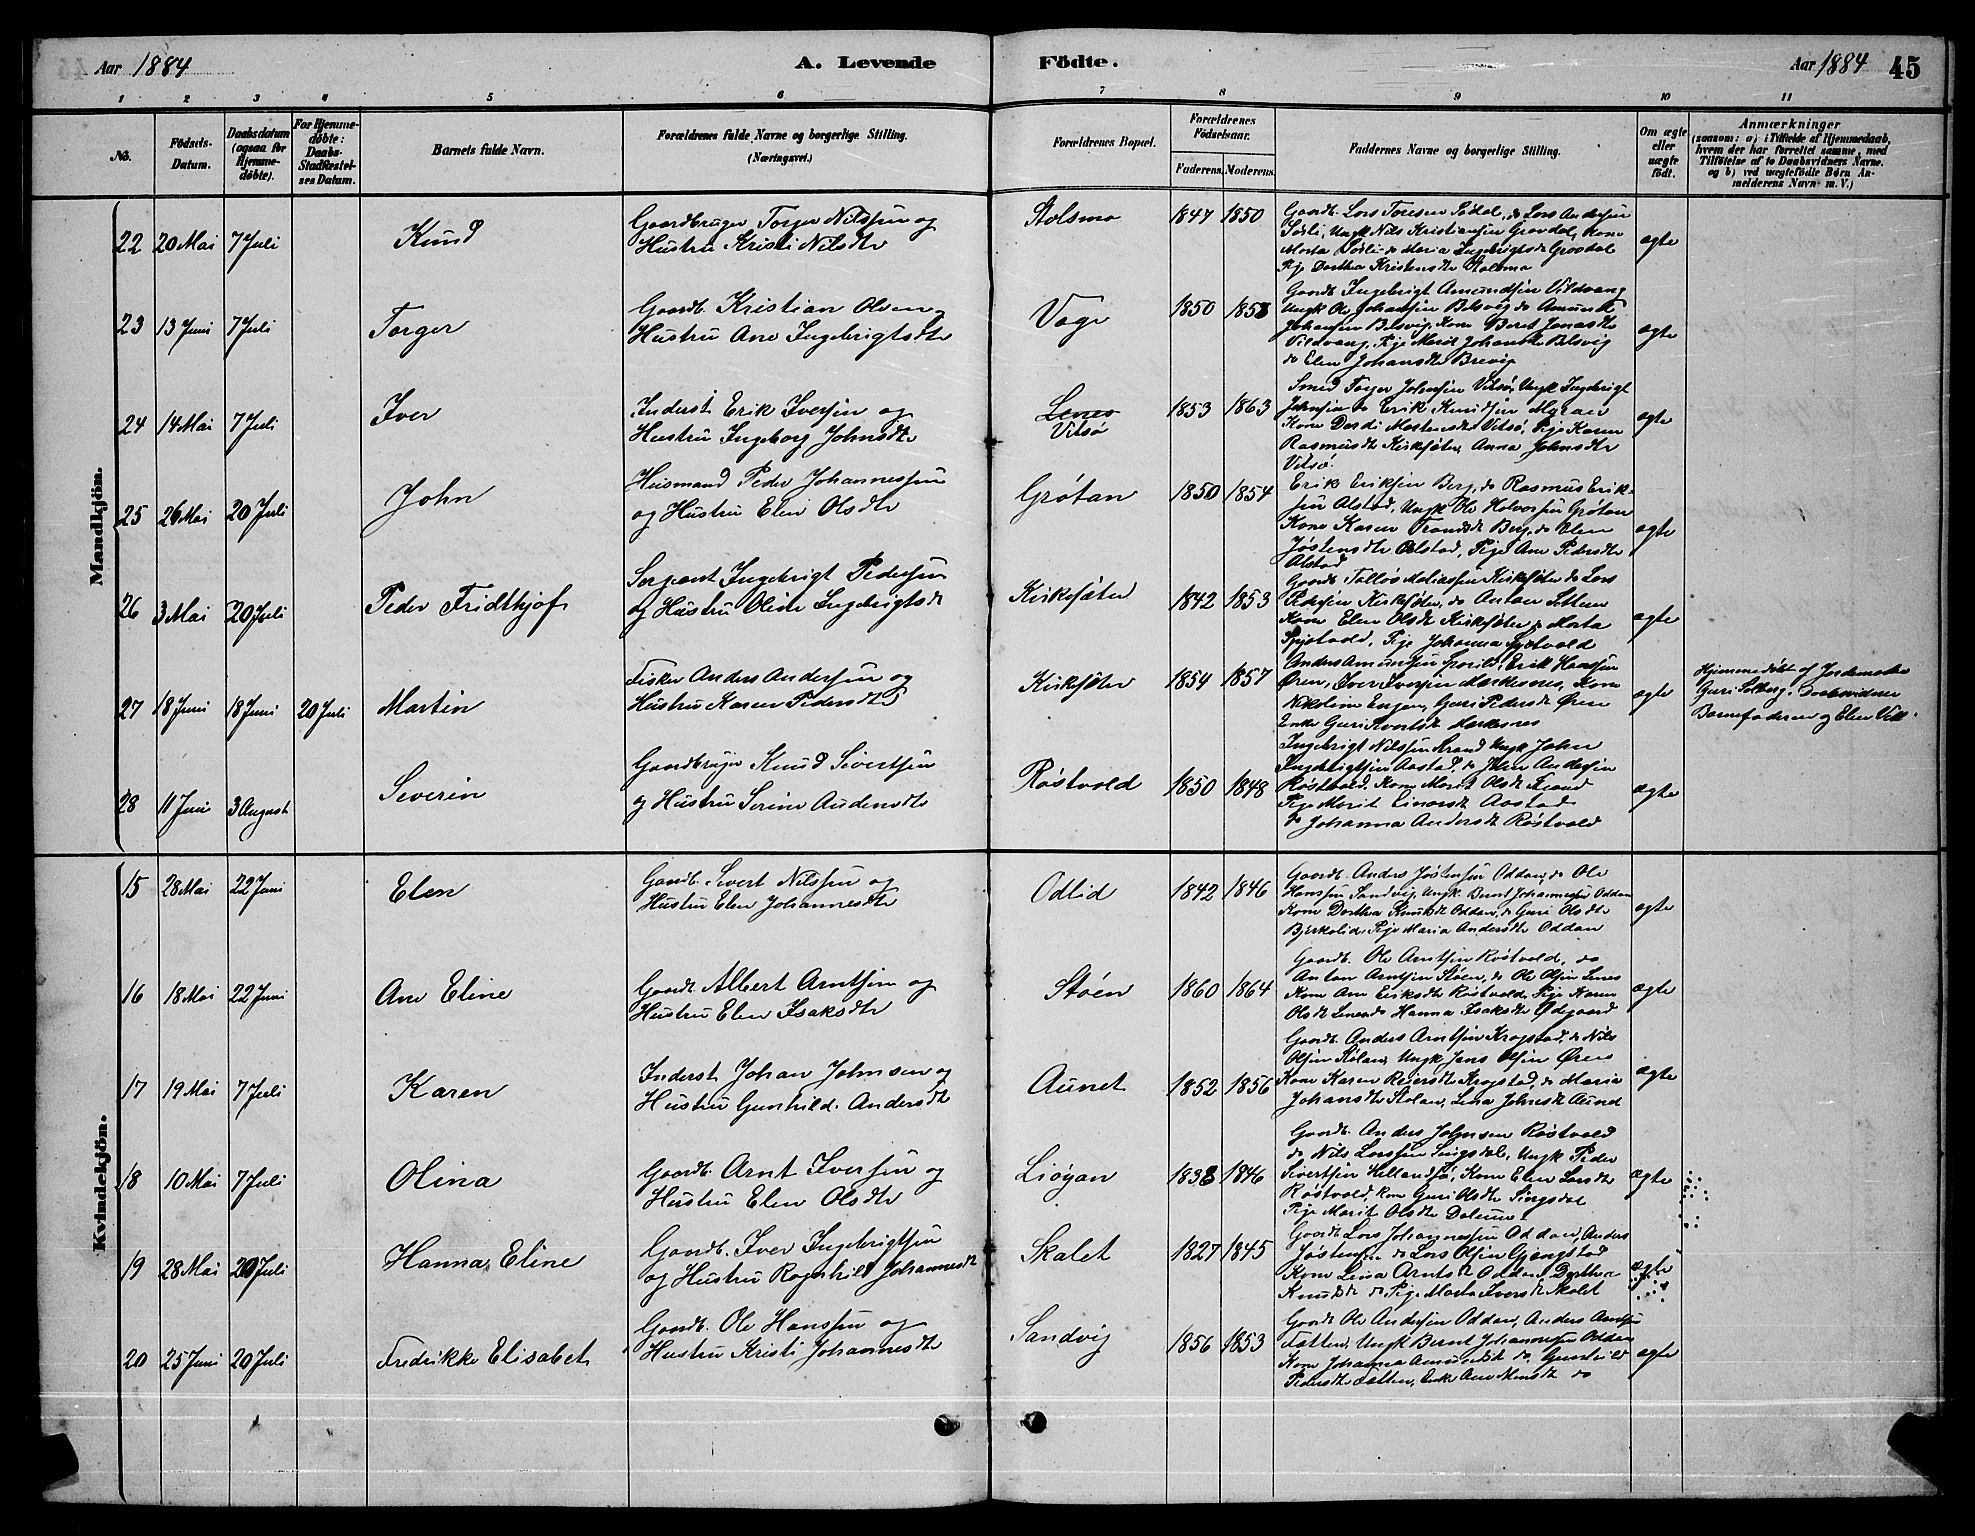 Aar 1884
A. Levende
Födte.
Aar 1884 45
1 2 3 4 5 6 7 8 9 10 11
No.
Fødsels-
Datum.
Daabsdatum
(ogsaa for
Hjemme-
døbte).
For Hjemme-
døbte:
Daabs-
Stadfæstel-
ses Datum.
Barnets fulde Navn.
Forældrenes fulde Navne og borgerlige Stilling.
(Næringsvei.)
Forældrenes Bopæl.
Forældrenes
Fødselsaar.
Faderens. Moderens.
Faddernes Navne og borgerlige Stilling.
Om ægte
eller
uægte
født.
Anmærkninger
(saasom: a) i Tilfælde af Hjemmedaab,
hvem der har forrettet samme, med
Tilføielse af to Daabsvidners Navne.
og b) ved uægtefødte Børn An-
melderens Navn m. V.)
Mandkjön.
22 20 Mai 7 Juli Knud
Gaardbruger Torger Nilssen og
Hustru Kristi Nilsdtr
Stolsmo 1847 1850
Gaardb. Lars Toresen Sødal, do Lars Andersen
Sødli, Ungk Nils Kristiansen Grovdal, Kone
Marta Sødli do Maria Ingebrigtsdt Grovdal
Pige Dorthea Kristensdtr Stolsmo
ægte
23 13 Juni 7 Juli Torger
Gaardb. Kristian Olsen og
Hustru Ane Ingebrigtsdtr
Vage 1850 1858
Gaardb. Ingebrigt Amundsen Vildvang
Ungk Ole Johansen Belsvig do Amund
Johansen Belsvig, Kone Beret Jonasdtr
Vildvang, Pige Marit Johansdtr Belsvig
do Elen Johansdtr Brevig
ægte
24 14 Mai 7 Juli Iver
Inderst Erik Iversen og
Hustru Ingeborg Johnsdtr
Lenes
Vitsø
1853 1863
Smed Torger Johnsen Vitsø, Ungk Ingebrigt
Johnsen do Erik Knudsen Myran
Kone Dordi Mortensdtr Vitsø, Pige Karen
Rasmusdtr Kirksæter, Anna Johnsdtr
Vitsø.
ægte
25 26 Mai 20 Juli John
Husmand Peder Johannessen
og Hustru Elen Olsdtr
Grøtan 1850 1854
Erik Eriksen Berg, do Rasmus Erik-
sen Alstad, Ungk Ole Halvorsen Grøtan
Kone Karen Trondsdt Berg, do Elen
Jøstensdtr Alstad, Pige Ane Pedersdtr
Alstad
ægte
26 3 Mai 20 Juli Peder Fridthjof
Sergeant Ingebrigt Pedersen
og Hustru Oline Ingebrigtsdt
Kirksæter 1842 1853
Gaardb. Tollev Matiassen Kirksæter do Lars
Pedersen Kirksæter, do Anton Settem
Kone Elen Olsdt Kirksæter do Marta
Pige Johanna
ægte
27 18 Juni 18 Juni 20 Juli Martin
Fisker Anders Andersen og
Hustru Karen Pedersdtr
Kirksæter 1854 1857
Anders Amundsen Erik Hanssen
Øren, Iver Iversen Markesnes, Kone
Nikoline Engan, Guri Pedersdt Øren
Enke Guri Markesnes
ægte
Hjemmedøbt af Jordemoder
Guri Solberg. Daabsvidner
Barnefaderen og Elen
28 11 Juni 3 August Severin
Gaardbruger Knud Sivertsen
og Hustru Serine Andersdtr
Røstvold 1850 1848
Ingebrigt Nilssen Strand Ungk John
Ingebrigtsen Aastad, do John Andersen
Røstvold, Kone Marit Olsdt
Pige Marit Einarsdt Aastad
do Johanna Andersdt Røstvold
ægte
Kvindekjön.
15 28 Mai 22 Juni Elen
Gaardb. Sivert Nilssen og
Hustru Elen Johannesdtr
Odlid 1842 1846
Gaardb. Anders Jøstensen Oddan, do Ole
Hanssen Sandvig, Ungk Bernt Johannessen Oddan
Kone Dorthea Knudsdt Oddan, do Guri Olsdtr
Bjerkelid, Pige Maria Andersdtr Oddan
ægte
16 18 Mai 22 Juni Ane Eline
Gaardb Albert Arntsen og
Hustru Elen Isaksdtr
Støen 1860 1864
Gaardb. Ole Arntsen Røstvold, do
Anton Arntsen Støen, do Ole Olsen Lenes
Kone Ane Eriksdtr Røstvold, Pige Karen
Olsdt Lenes do Hanna Isaksdtr Ødegaard
ægte
17 19 Mai 7 Juli Karen
Inderst Johan Johnsen og
Hustru Gunhild Andersdtr
Aunet 1852 1856
Gaardb. Anders Arntsen Krogstad, do Nils
Olsen Stølan, Ungk Jens Olsen Øren
Kone Karen Reiersdtr Krogstad, do Maria
Johansdtr Stølan, Lena Johnsdt Aunet
ægte
18 10 Mai 7 Juli Olina
Gaardb. Arnt Iversen og
Hustru Elen Olsdtr
Liøyan 1838 1846
Gaardb. Anders Johnsen Røstvold
do Nils Larssen Singsdal, Ungk Peder
Sivertsen Hellandsjø, Kone Elen Larsdtr
Røstvold, Kone Guri Olsdtr Singsdal
Pige Marit Olsdtr
ægte
19 28 Mai 20 Juli Hanna Eline
Gaardb. Iver Ingebrigtsen
og Hustru Ragnhild Johannesdt
Skalet 1827 1845
Gaardb Lars Johannessen Oddan, Anders
Jøstensen do Lars Olsen Gjengstad
Kone Lena Arntsdt Oddan, Dorthea
Knudsdt do Pige Marta Iversdt Skalet
ægte
20 25 Juni 20 Juli Fredrikke Elisabet
Gaardb. Ole Hanssen og
Hustru Kristi Johannesdtr
Sandvig 1856 1853
Gaardb Ole Andersen Oddan, Anders Arntsen
Fætten, Ungk Bernt Johannessen Oddan
Kone Johanna Amundsdt do, Gunhild
Pedersdtr Fætten, Enke Ane Monsdt do
ægte